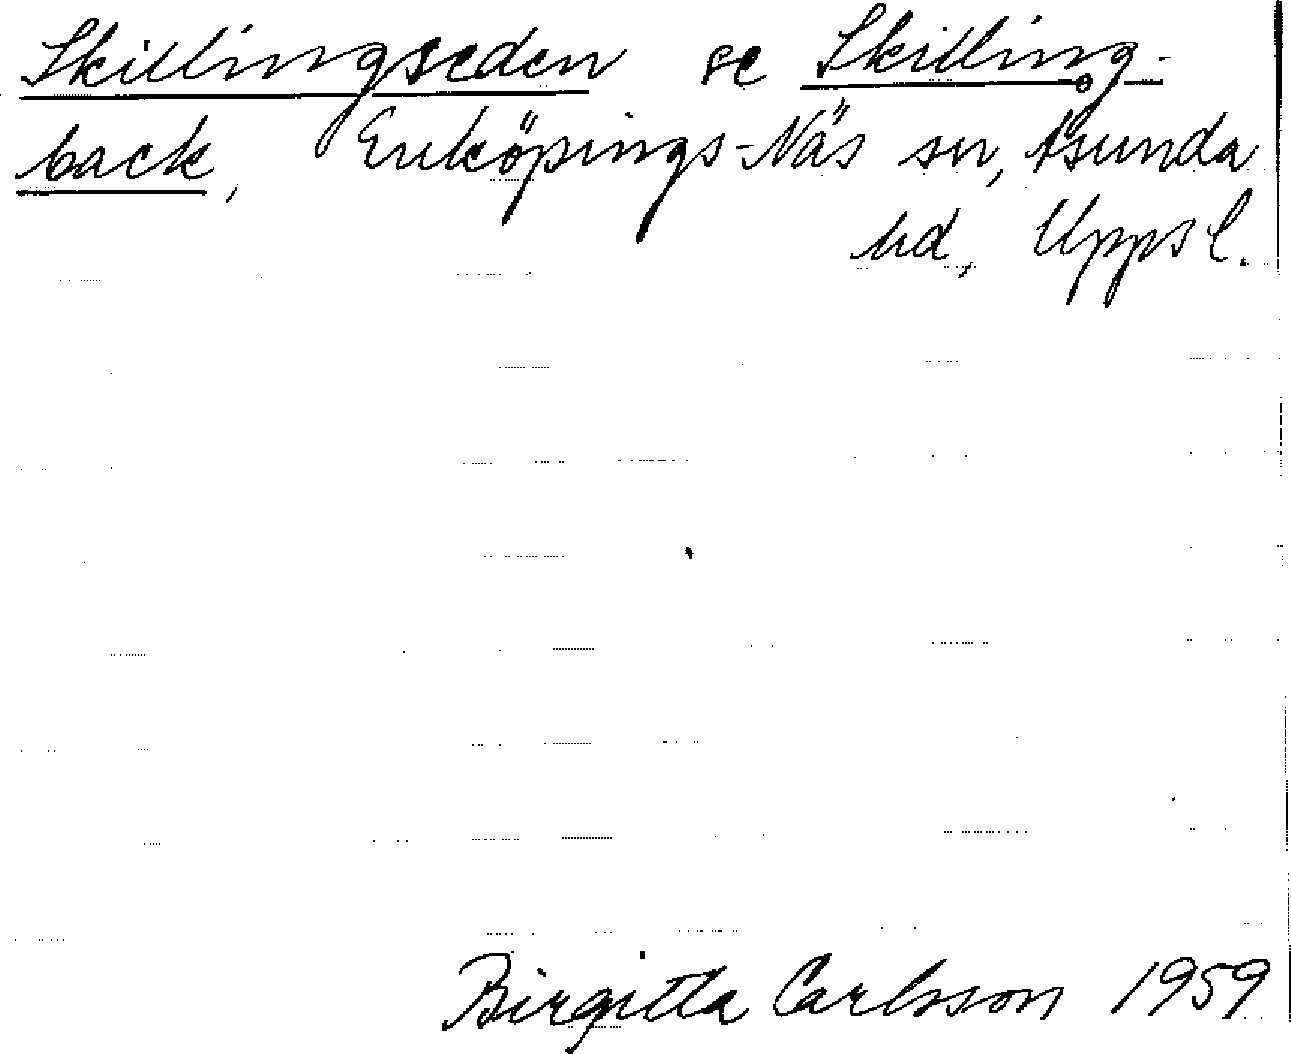 Skillingseden se Skilling-
back, Enköpings-Näs sn, Åsunda
hd, Upps l.
Birgitta Carlsson 1959